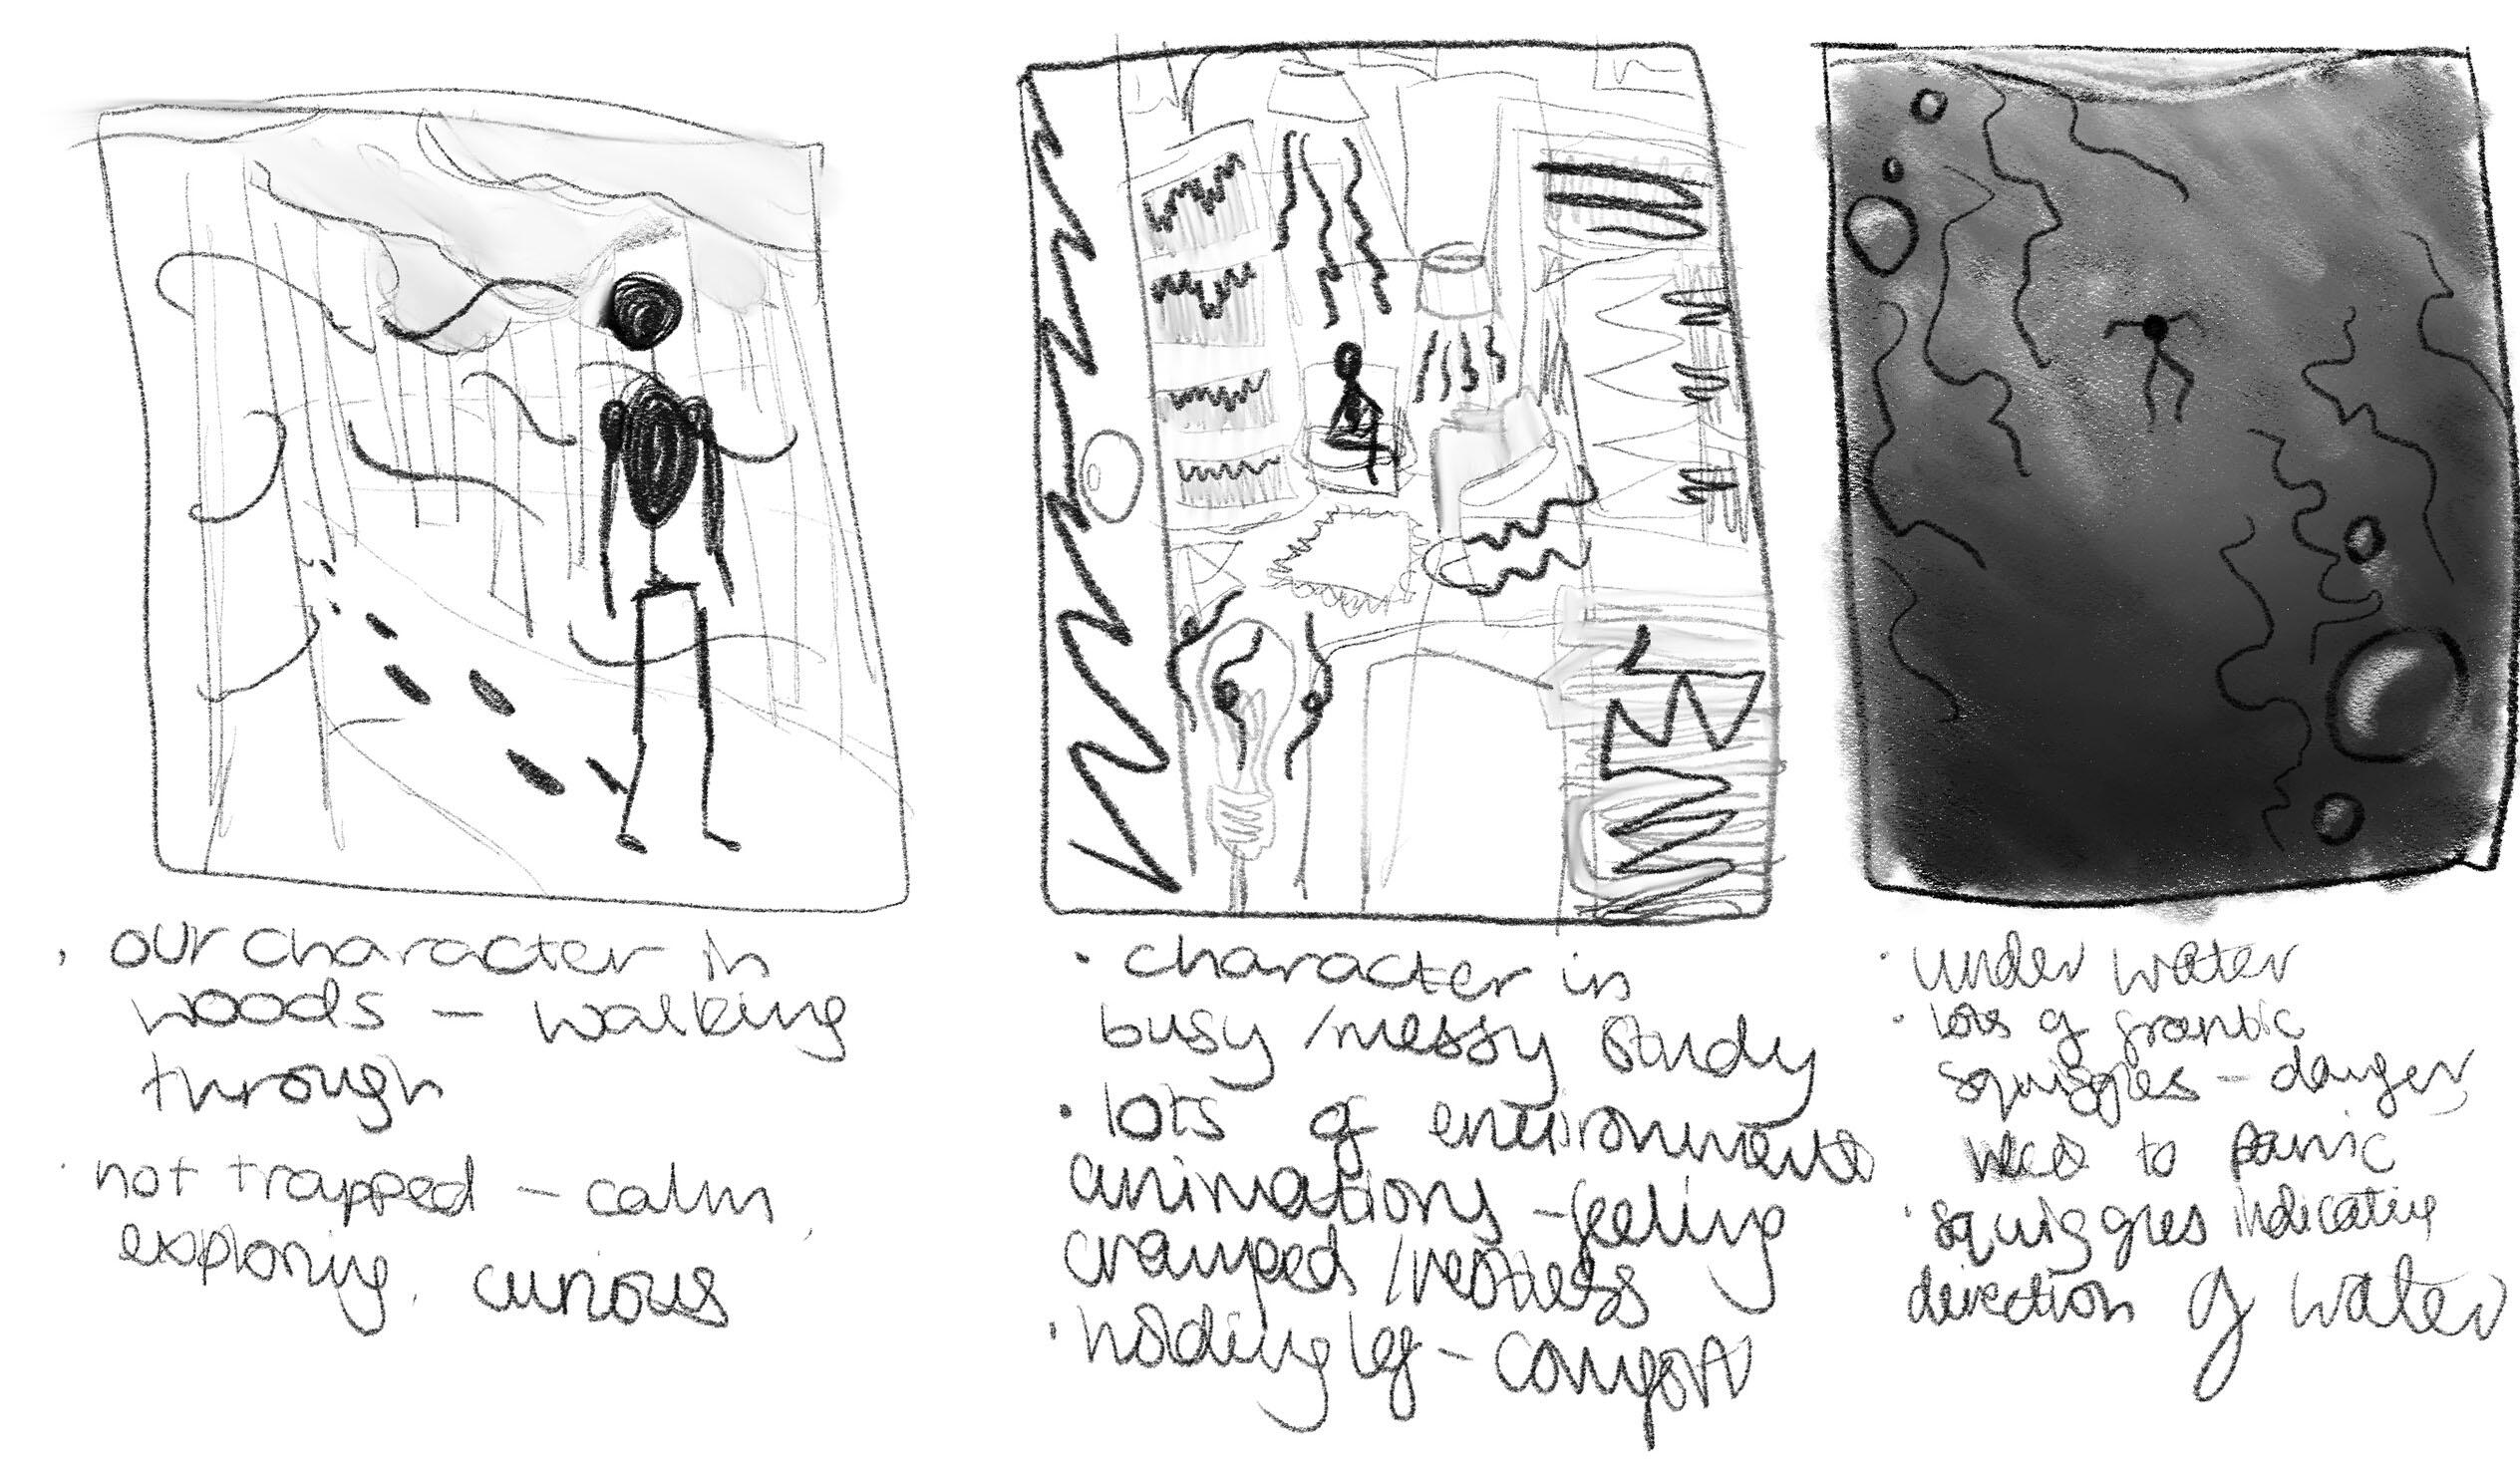 · our character in
woods – walking
through
· not trapped – calm,
exploring, curious
· character in
busy/messy study
· lots of environments
animations – feeling
cramped/restless
· holding leg – comfort
· under water
· lots of frantic
squiggles – danger,
to panic
· squiggles indicating
direction of water